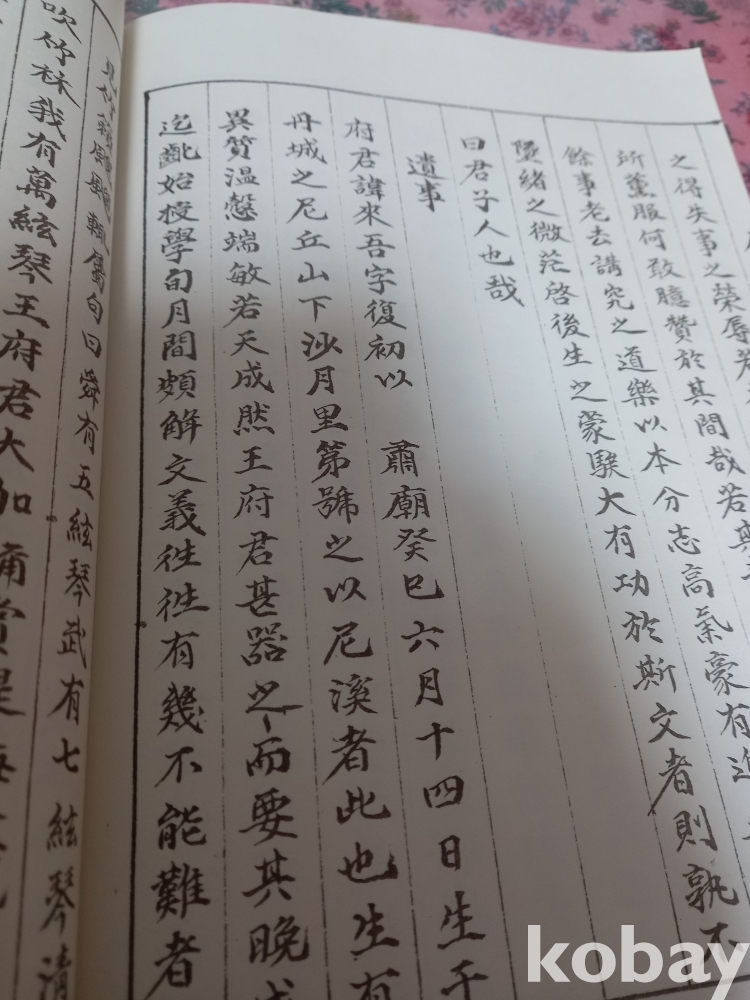 之得失事之榮辱若
所薰服何敢臆贊於其間哉若其
餘事老去講究之道樂以本分志高氣豪有
墜緖之微茫啓後生之蒙騃大有功於斯文者則孰不
曰君子人也哉
遺事
府君諱來吾字復初以 肅廟癸巳六月十四日生于
丹城之尼丘山下沙月里第號之以尼溪者此也生有
異質溫慤端敏若天成然王府君甚器之而要其晚成
迄齔始授學旬月間頗解文義徃徃有幾不能難者
屬句曰舜有五絃琴武有七絃琴淸
吹竹林我有萬絃琴王府君大加
kobay